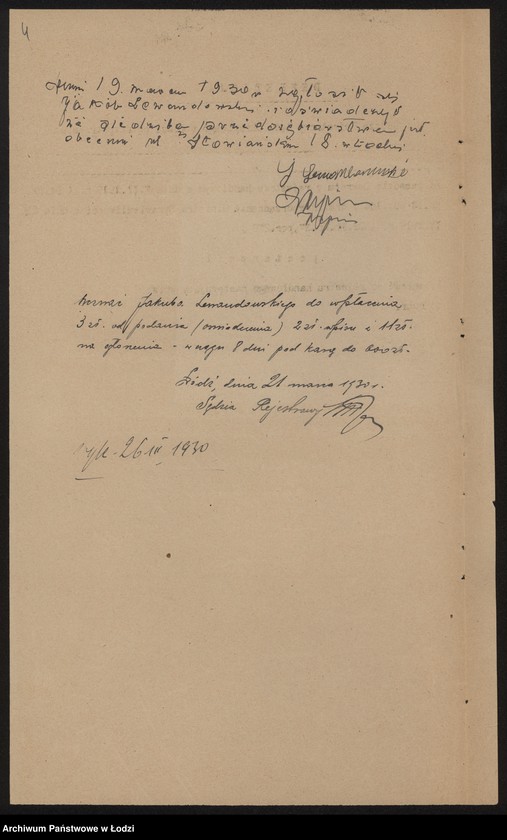 4
Dnia 19 marca 1930 r zgłosił się
Jakób Lewandowski i oświadczył
że siedziba przedsiębiorstwa jest
obecnie ul Słowiańska 18. w Łodzi
J Lewandowski
Wezwać Jakuba Lewandowskiego do wpłacenia
3 zł. od podania (oświadczenia) 2 zł. wpisu i 11 zł.
na ogłoszenia - w ciągu 8 dni pod karą do 600 zł.
Łódź, dnia 21 marca 1930 r.
Sędzia Rejestrowy
26 III 1930
Archiwum Państwowe w Łodzi